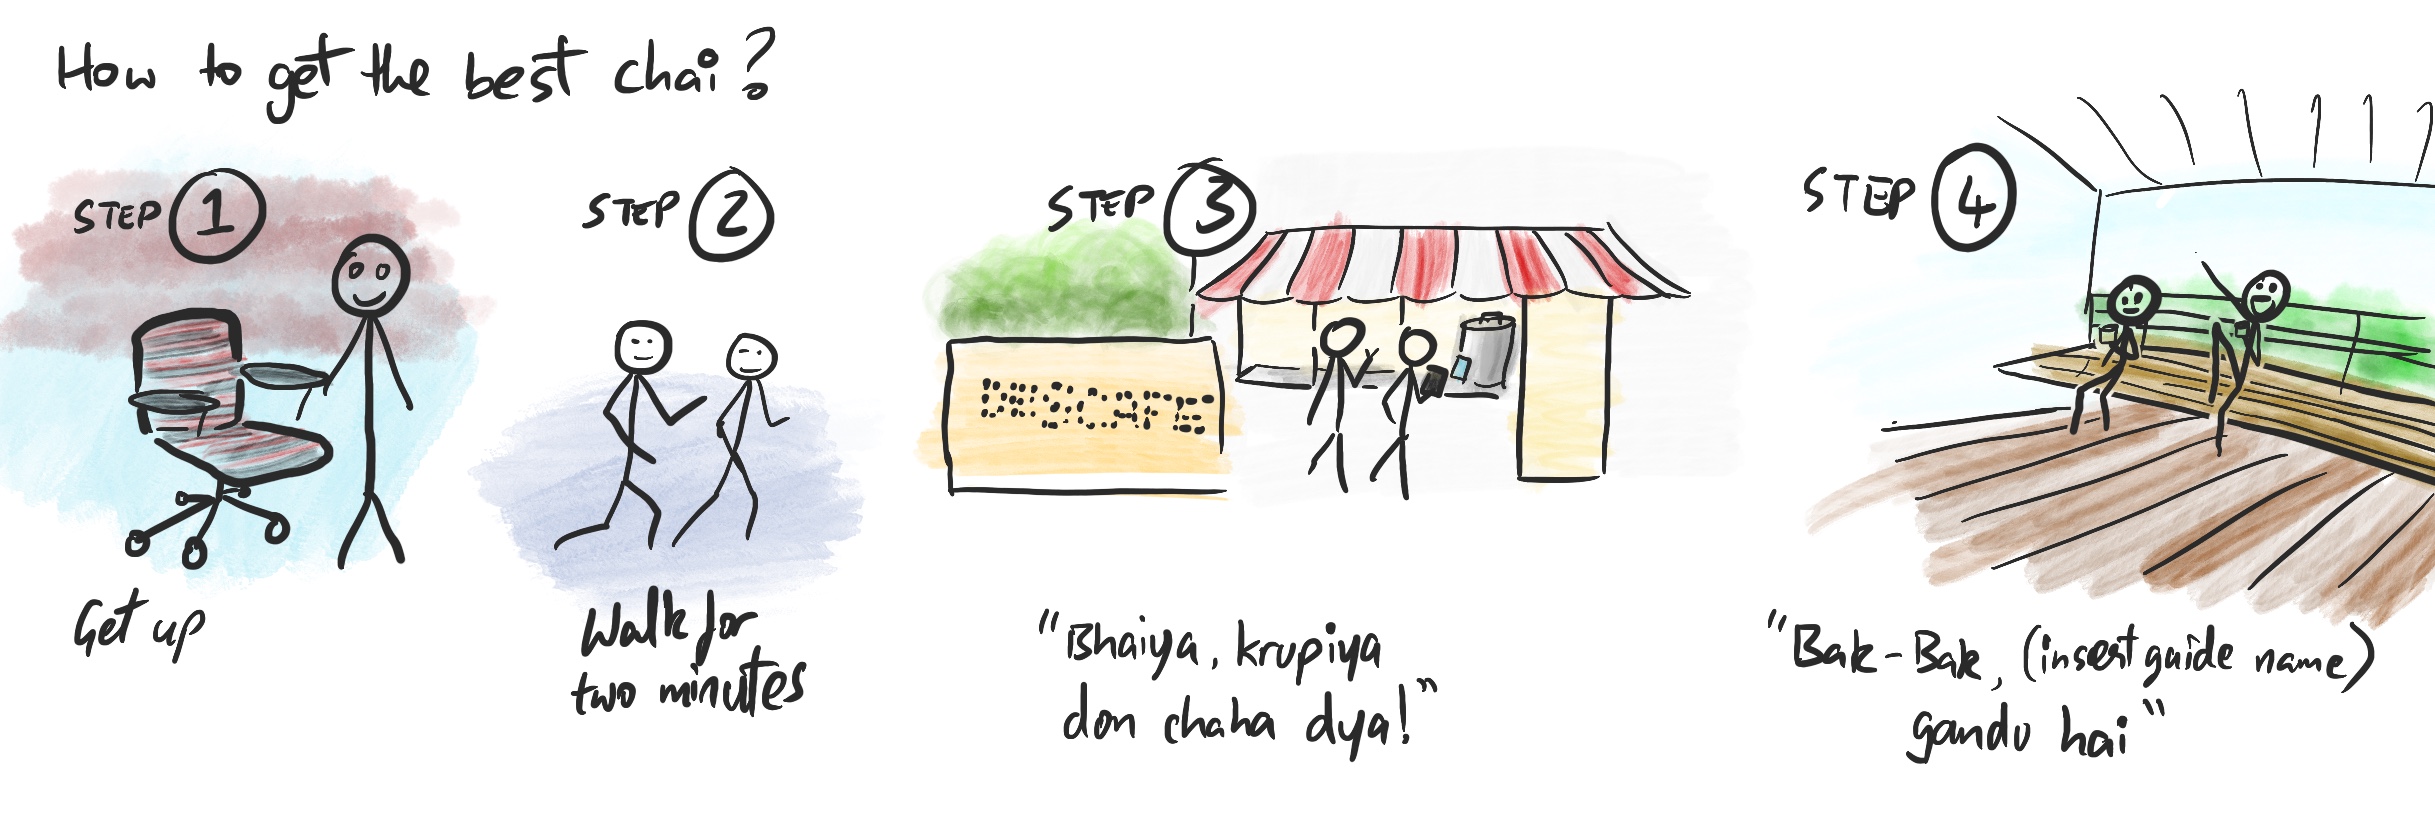 How to get the best chai?
STEP 1
Get up
STEP 2
Walk for
two minutes
STEP 3
"Bhaiya, krupiya
don chaha dya!"
STEP 4
"Bak-Bak, (insert guide name)
gandu hai"